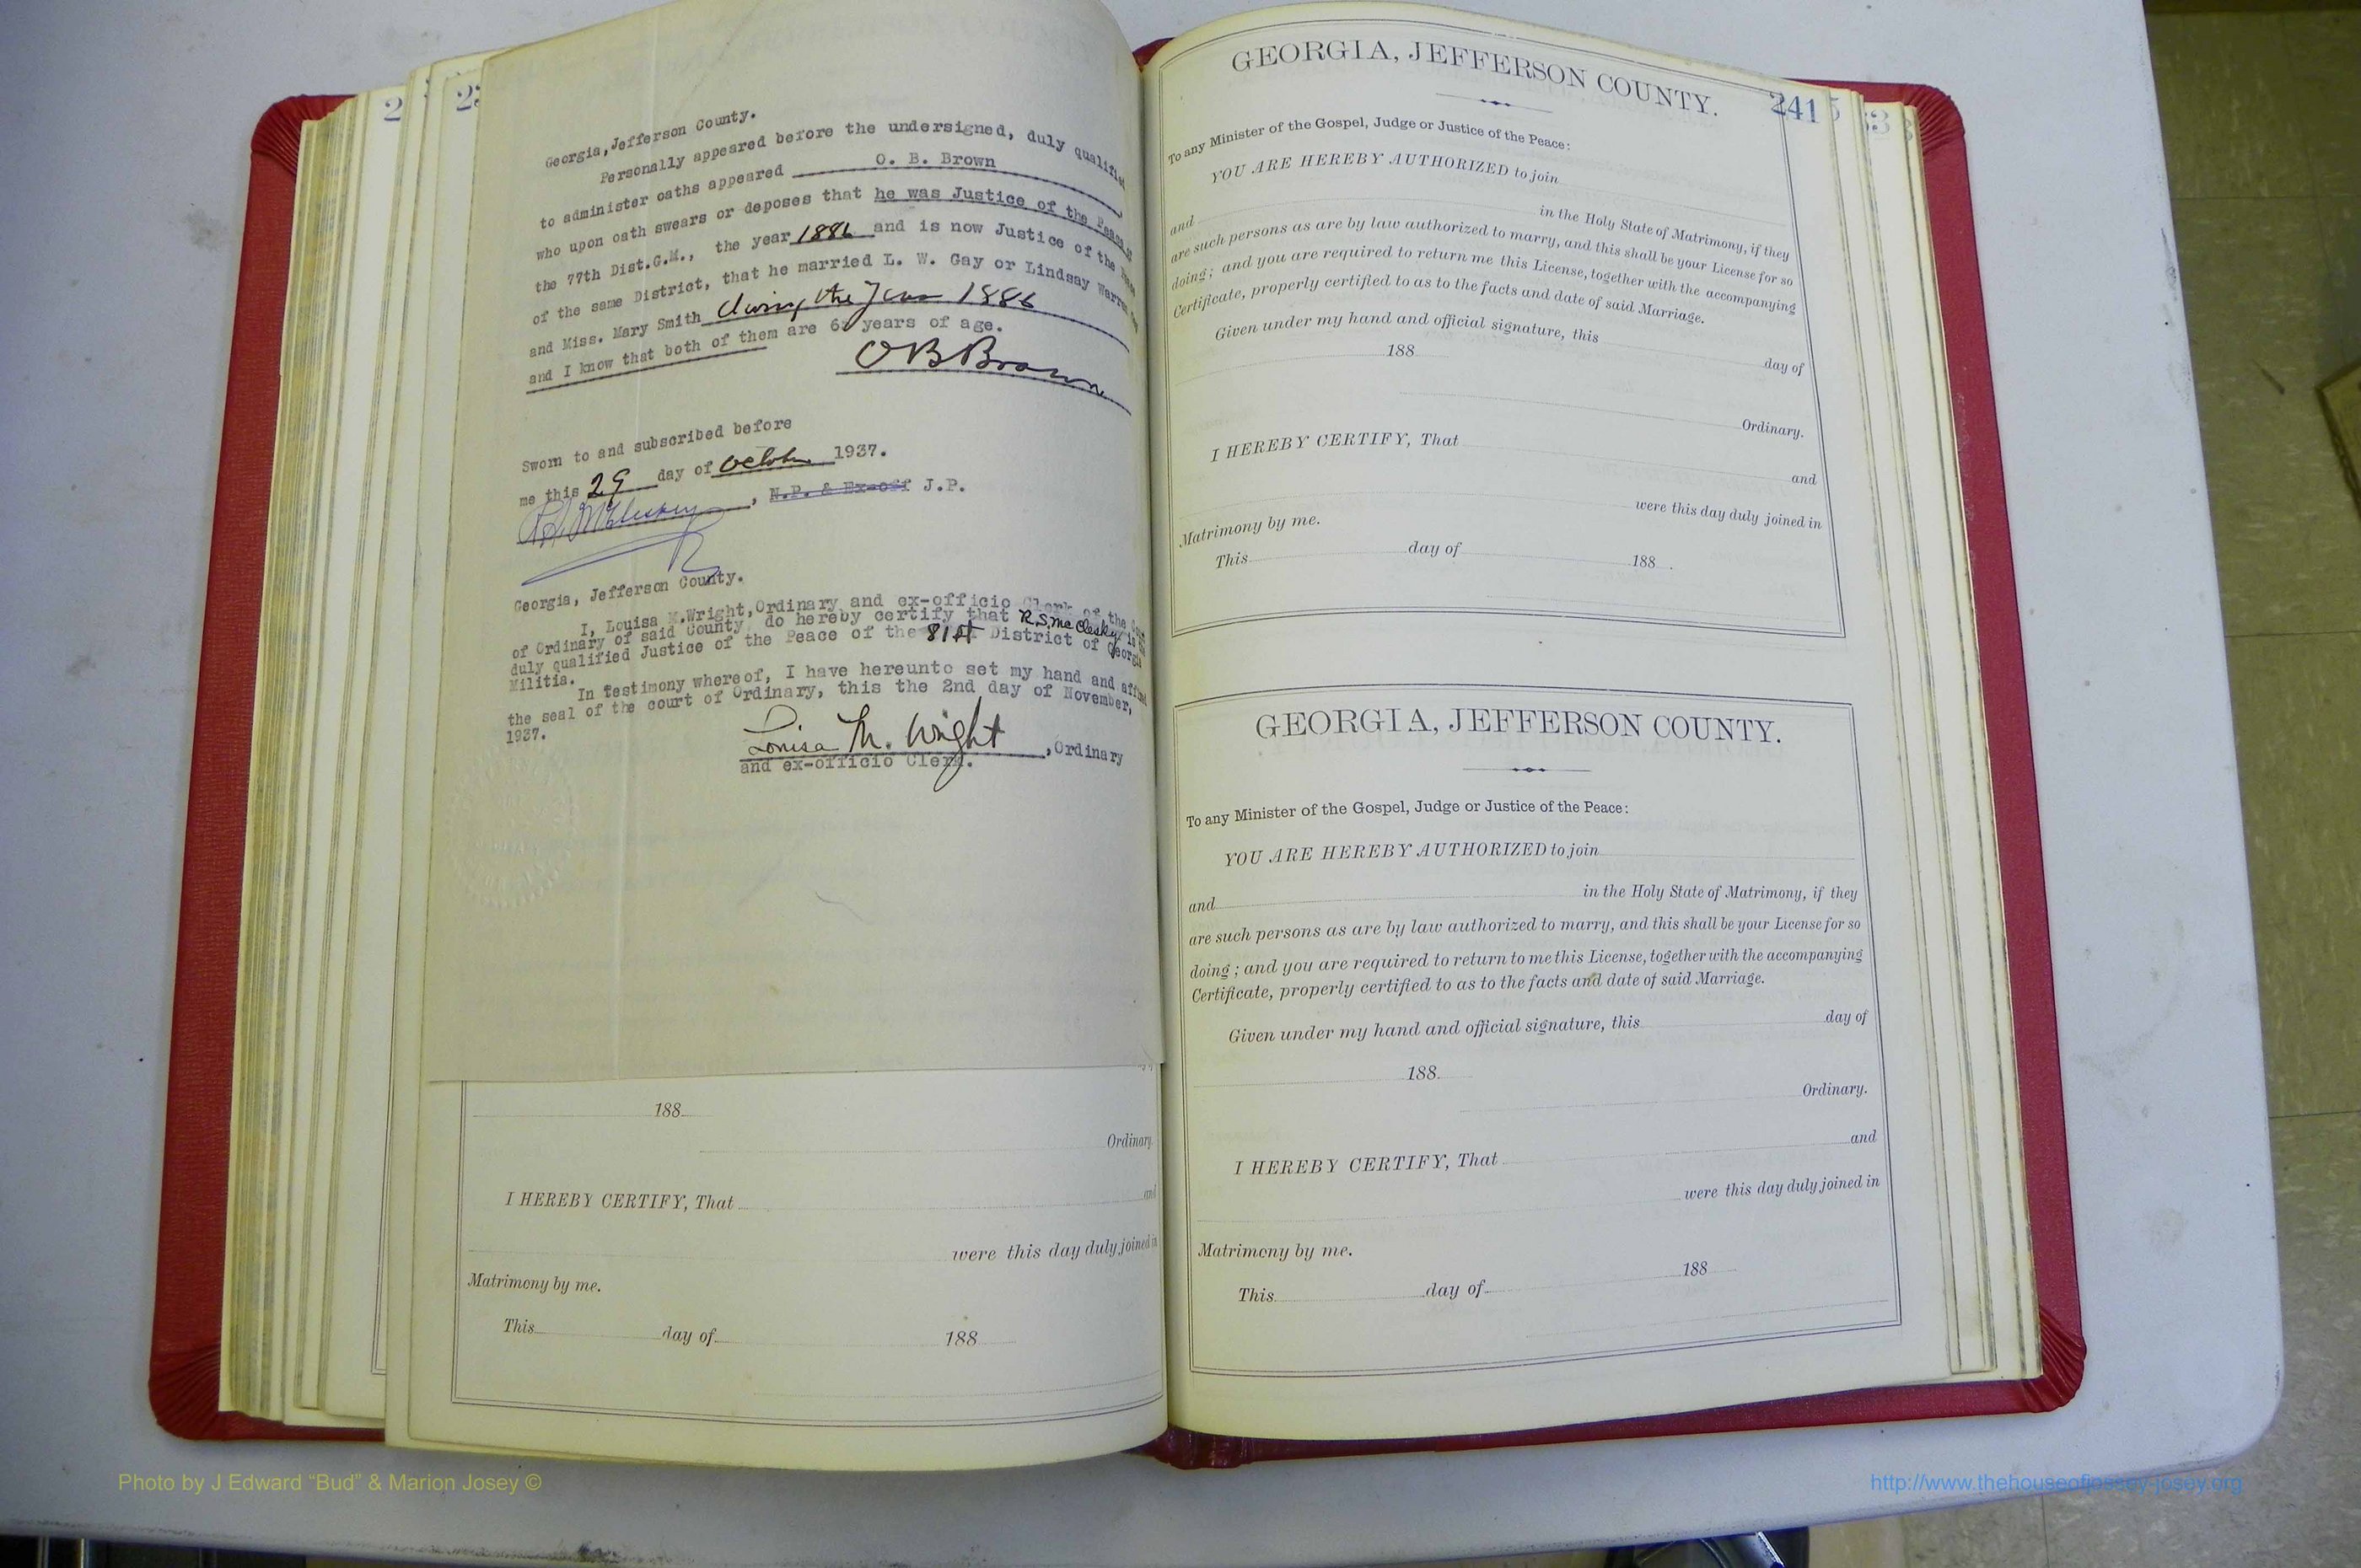 2
2
Georgia, Jefferson County.
Personally appeared before the undersigned, duly qualified
to administer oaths appeared O. B. Brown
who upon oath swears or deposes that he was Justice of the Peace of
the 77th Dist.G.M., the year 1886 and is now Justice of the Peace
of the same District, that he married L. W. Gay or Lindsay Warren
and Miss. Mary Smith during the Year 1886
and I know that both of them are 6 years of age.
O B Brown
Sworn to and subscribed before
me this 29 day of October 1937.
, N.P. & Ex-off J.P.
Georgia, Jefferson County.
I, Louisa M.Wright,Ordinary and ex-officio Clerk of the Court
of Ordinary of said County, do hereby certify that R.S. McClesky is
duly qualified Justice of the Peace of the 81st District of Georgia
Militia.
In testimony whereof, I have hereunto set my hand and affixed
the seal of the court of Ordinary, this the 2nd day of November,
1937.
Louisa M. Wright ,Ordinary
and ex-officio Clerk.
188
Ordinary.
I HEREBY CERTIFY, That and
were this day duly joined in
Matrimony by me.
This day of 188
241
GEORGIA, JEFFERSON COUNTY.
To any Minister of the Gospel, Judge or Justice of the Peace:
YOU ARE HEREBY AUTHORIZED to join
and in the Holy State of Matrimony, if they
are such persons as are by law authorized to marry, and this shall be your License for so
doing; and you are required to return me this License, together with the accompanying
Certificate, properly certified to as to the facts and date of said Marriage.
Given under my hand and official signature, this day of
188
Ordinary.
I HEREBY CERTIFY, That
and
were this day duly joined in
Matrimony by me.
This day of 188 .
GEORGIA, JEFFERSON COUNTY.
To any Minister of the Gospel, Judge or Justice of the Peace:
YOU ARE HEREBY AUTHORIZED to join
and in the Holy State of Matrimony, if they
are such persons as are by law authorized to marry, and this shall be your License for so
doing; and you are required to return to me this License, together with the accompanying
Certificate, properly certified to as to the facts and date of said Marriage.
Given under my hand and official signature, this day of
188
Ordinary.
I HEREBY CERTIFY, That and
were this day duly joined in
Matrimony by me.
This day of 188
Photo by J Edward “Bud” & Marion Josey ©
http://www.thehouseofjossey-josey.org